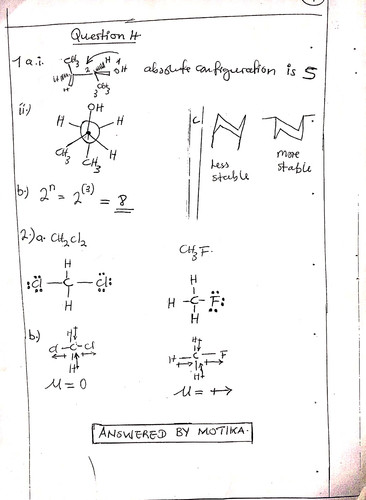 Question 4
1 a.i.
CH₃
H
1
2
OH
H
H
3
CH₃
absolute configuration is S
ii:)
OH
H
H
CH₃
CH₃
H
C
Less stable
more stable
b.) 2ⁿ = 2⁽³⁾ = 8
2.) a. CH₂Cl₂
CH₃F.
H
:Cl - C - Cl:
H
H
H - C - F:
H
b.)
H
Cl - C - Cl
H
μ = 0
H
H - C - F
H
μ = ↦
ANSWERED BY MOTIKA.